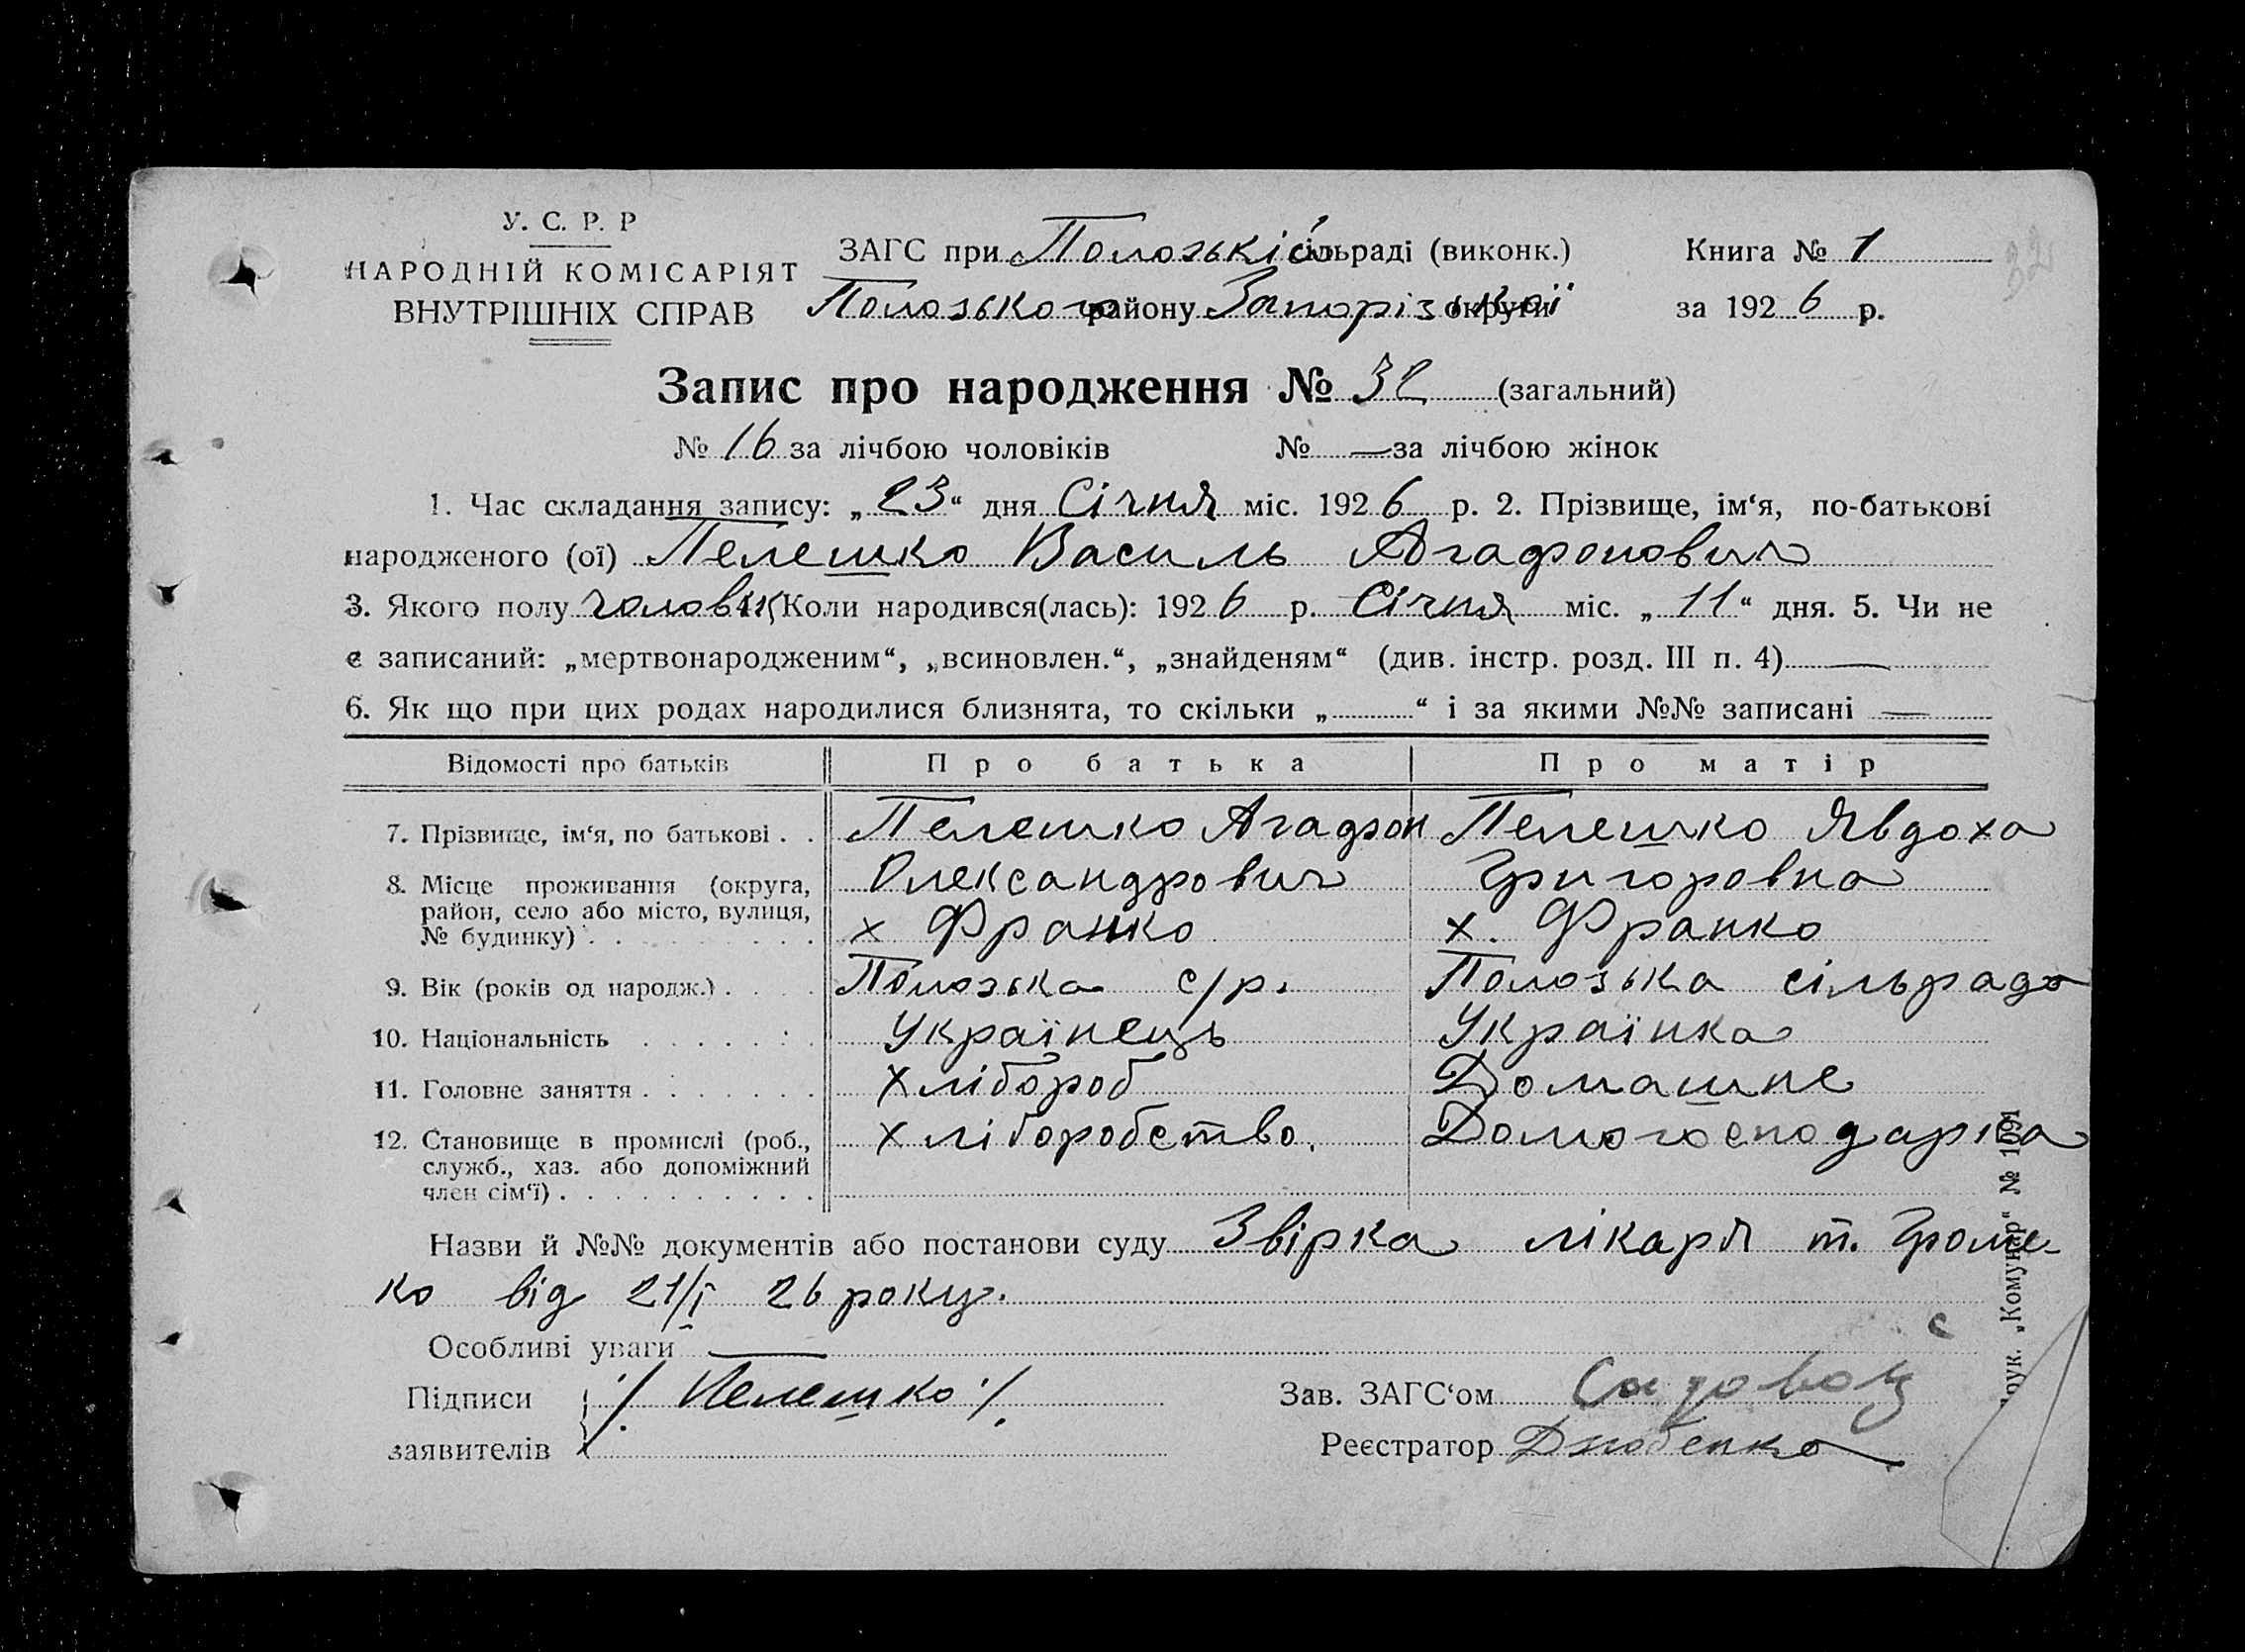 У. С. Р. Р
НАРОДНІЙ КОМІСАРІЯТ
ВНУТРІШНІХ СПРАВ
ЗАГС при Полозькій сільраді (виконк.)
Полозького району Запорізької округи
Книга № 1
за 1926 р.
32
Запис про народження № 32 (загальний)
№ 16 за лічбою чоловіків № — за лічбою жінок
1. Час складання запису: „23“ дня Січня міс. 1926 р. 2. Прізвище, ім‘я, по-батькові
народженого (ої) Пелешко Василь Агафонович
3. Якого полу чоловік Коли народився(лась): 1926 р. Січня міс. „11“ дня. 5. Чи не
є записаний: „мертвонародженим“, „всиновлен.“, „знайденям“ (див. інстр. розд. III п. 4) —
6. Як що при цих родах народилися близнята, то скільки „ “ і за якими №№ записані —
Відомості про батьків Про батька Про матір
7. Прізвище, ім‘я, по батькові . . Пелешко Агафон Пелешко Явдоха
8. Місце проживання (округа, Олександрович Григоровна
район, село або місто, вулиця,
№ будинку) х Франко х. Франко
9. Вік (років од народж.) Полозька с/р. Полозька сільрада
10. Національність Українець Українка
11. Головне заняття Хлібороб Домашнє
12. Становище в промислі (роб., Хліборобство. Домогосподарка
служб., хаз. або допоміжний
член сім‘ї)
Назви й №№ документів або постанови суду Звірка лікаря т. Громе-
ко від 21/I 26 року.
Особливі уваги —
Підписи /Пелешко/ Зав. ЗАГС‘ом
заявителів Реєстратор
„Комунар“ № 1091